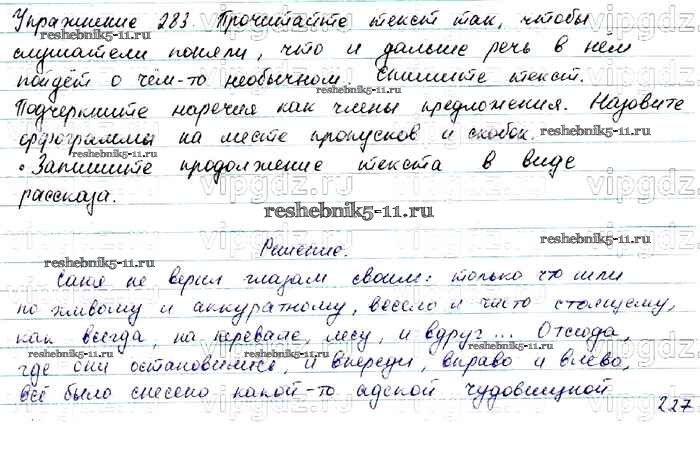 Упражнение 283. Прочитайте текст так, чтобы
слушатели поняли, что и дальше речь в нём
пойдёт о чём-то необычном. Спишите текст.
Подчеркните наречия как члены предложения. Назовите
орфограммы на месте пропусков и скобок.
• Запишите продолжение текста в виде
рассказа.
reshebnik5-11.ru
Решение.
Саня не верил глазам своим: только что шли
по живому и аккуратному, весело и чисто стоящему,
как всегда, на перевале лесу, и вдруг... Отсюда,
где они остановились, и впереди, вправо и влево,
всё было снесено какой-то адской чудовищной
227